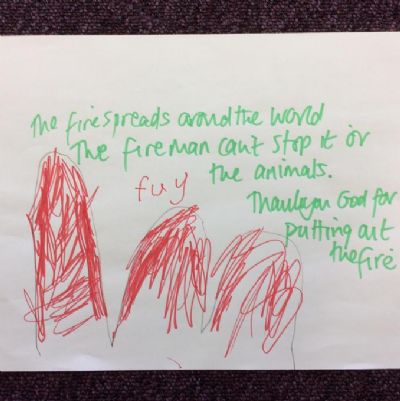 The fire spreads around the world
The fireman can't stop it or
the animals.
fuy
Thankyou God for
putting out
the fire